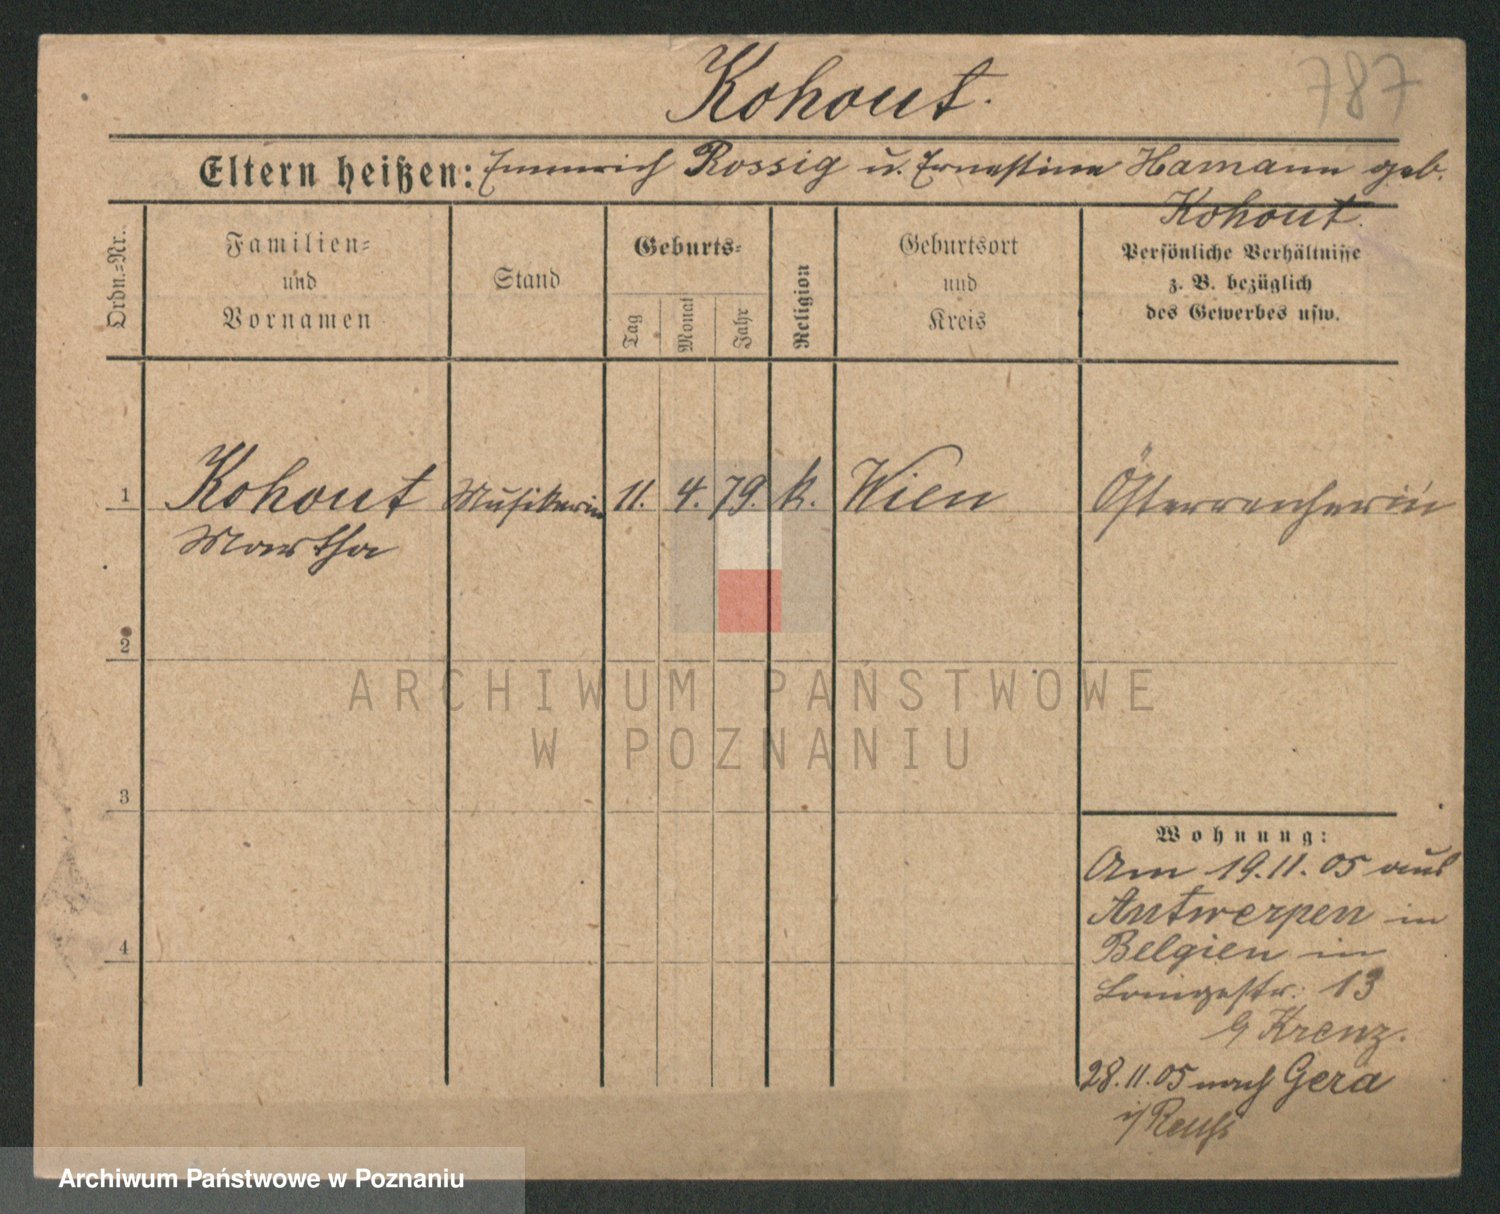 Kohout.
787
Eltern heißen: Emmerich Rossig u. Ernestine Hamann geb.
Kohout.
Ordn.=Nr.
Familien=
und
Vornamen
Stand
Geburts=
Tag
Monat
Jahr
Religion
Geburtsort
und
Kreis
Persönliche Verhältnisse
z. B. bezüglich
des Gewerbes usw.
1 Kohout Musikerin 11. 4. 79. k. Wien Österreicherin
Martha
2
ARCHIWUM PAŃSTWOWE
W POZNANIU
3
Wohnung:
Am 19.11.05 aus
Antwerpen in
4
Belgien in
13
Krenz.
28.11.05 nach Gera
i/Reuß
Archiwum Państwowe w Poznaniu